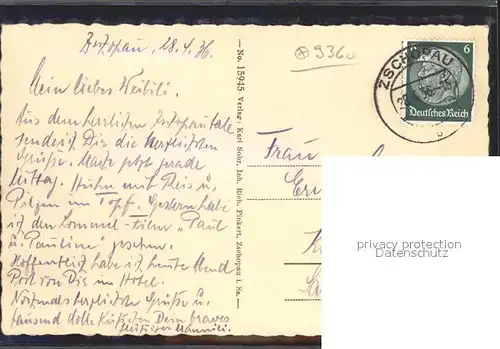 Zschopau, 18.4.36.
Mein liebes Weibili.
Aus dem herrlichen Zschopautale
sendet Dir die herzlichsten
Grüsse. Mache jetzt gerade
Mittag. Huhn mit Reis u.
Pilzen im Topf. Gestern habe
ich den Lommel-Film „Paul
u. Pauline" gesehen.
Hoffentlich habe ich heute Abend
Post von Dir im Hotel.
Nochmals herzliche Grüsse u.
tausend dolle Küsschen Dein braves
Männili.
— No. 15945 Verlag: Karl Sohr, Inh. Rich. Pinkert, Zschopau i. Sa. —
9360
ZSCHOPAU
6
Deutsches Reich
Frau
privacy protection
Datenschutz